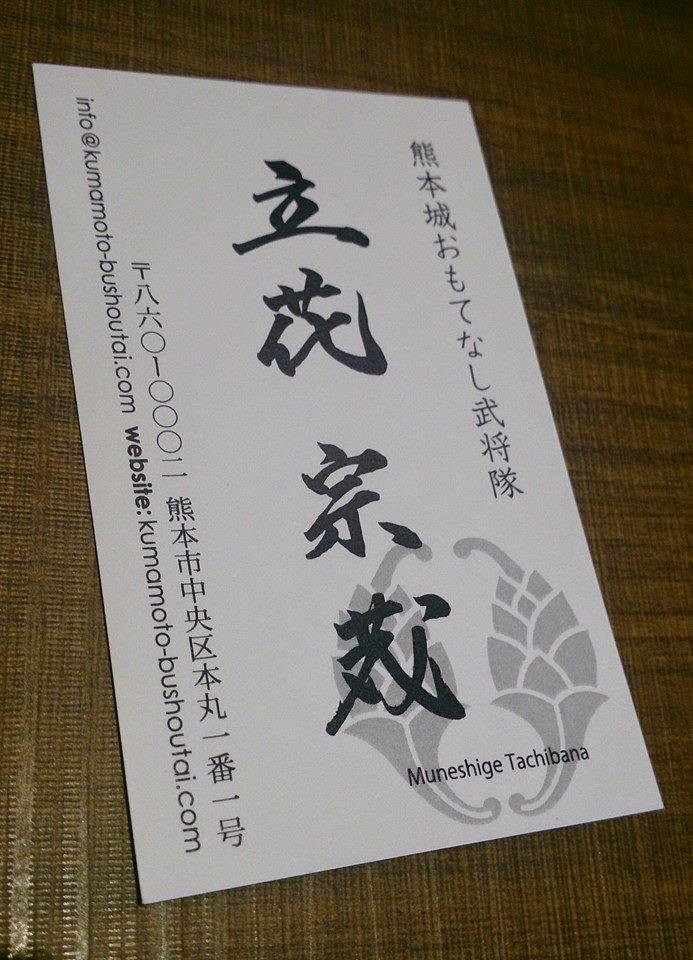 熊本城おもてなし武将隊
立花 宗茂
Muneshige Tachibana
〒八六〇ー〇〇〇二 熊本市中央区本丸一番一号
info@kumamoto-bushoutai.com website: kumamoto-bushoutai.com